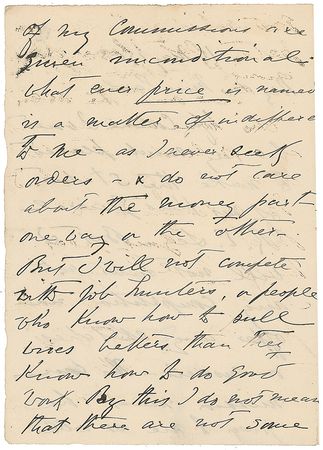 of my Commissions are
given unconditional
what ever price is named
is a matter of indiffere
to me - as I never seek
orders - & do not care
about the money part
one way or the other -
But I will not compete
with job hunters, or people
who know how to pull
wires better than they
know how to do good
work. By this I do not mean
that there are not some